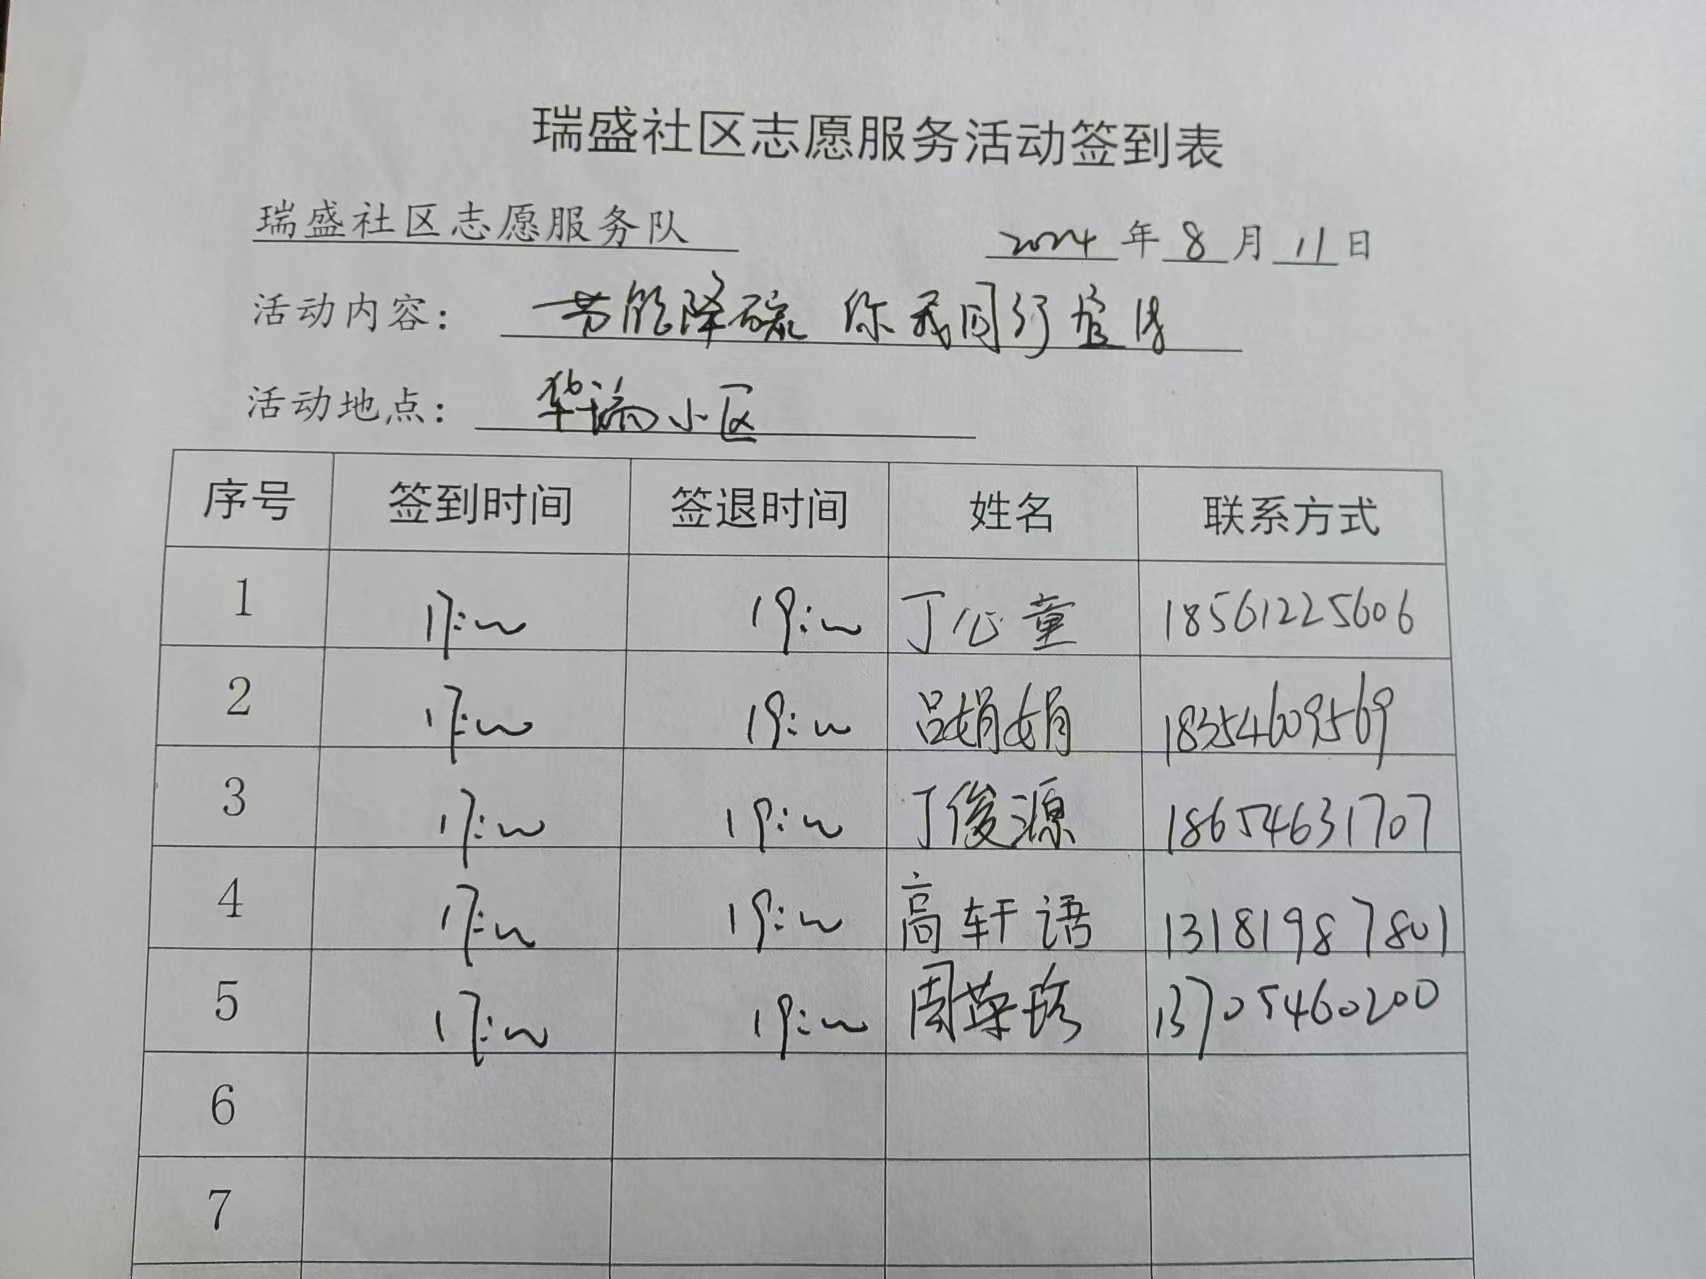 瑞盛社区志愿服务活动签到表
瑞盛社区志愿服务队 2024年8月11日
活动内容：节能降碳 你我同行宣传
活动地点：华瑞小区
序号 签到时间 签退时间 姓名 联系方式
1 17:00 19:00 丁心童 18561225606
2 17:00 19:00 吕娟娟 18354609569
3 17:00 19:00 丁俊源 18654631707
4 17:00 19:00 高轩语 13181987801
5 17:00 19:00 周荣 13705460200
6
7